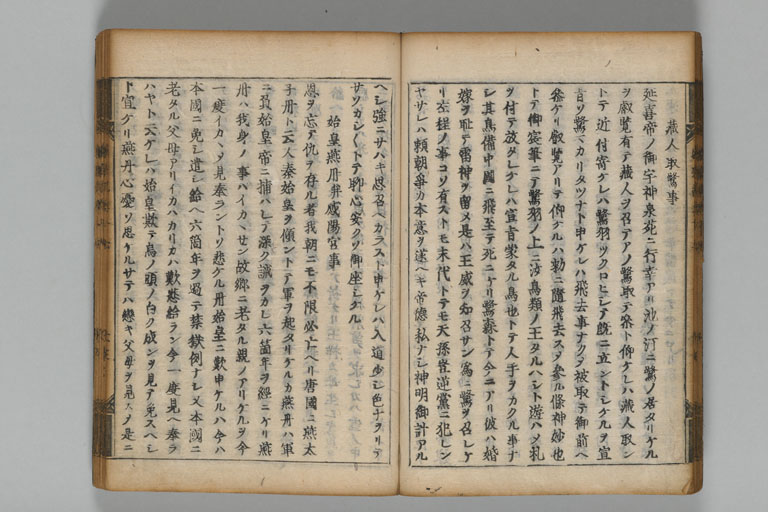 蔵人取鷺事
延喜帝ノ御宇神泉苑ニ行幸アリ池ノ汀ニ鷺ノ居タリケル
ヲ叡覧有テ蔵人ヲ召テアノ鷺取テ参ト仰ケレハ蔵人取ン
トテ近付寄ケレハ鷺羽ツクロヒシテ既ニ立ントシケルヲ宣
旨ソ鷺マカリタツナト申ケレハ飛去事ナクテ被取テ御前ヘ
参ケリ叡覧アリテ仰ケルハ勅ニ随飛去スメ参ル條神妙也
トテ御宸筆ニテ鷺羽ノ上ニ汝鳥類ノ王タルヘシト遊ハメ札
ヲ付テ放タレケレハ宣旨蒙タル鳥也トテ人手ヲカクル事ナ
シ其鳥備中國ニ飛至テ死ニケリ鷺森トテ今ニアリ彼ハ
ヲ留メ是ハ王威ヲ知召サン為ニ鷺ヲ召レケ
リ左程ノ事コソ有ストモ末代トテモ天孫豈逆黨ニ犯レン
ヤサレハ頼朝争カ本意ヲ遂ヘキ帝德私ナシ神明御計アル
ヘシ強ニサハキ思召ヘカラスト申ケレハ入道少シ色ナヲリテ
サソカシ〱トテ聊心安クソ御座シケル
始皇燕丹并咸陽宮事
恩ヲ忘テ仇ヲ存ル者我朝ニモ不限必亡ヘリ唐國ニ燕太
子丹ト云人秦始皇ヲ傾ントテ軍ヲ起タリケルカ燕丹ハ軍
ニ負始皇帝ニ捕ハレテ深ク誡ヲカレ六箇年ヲ經ニケリ燕
丹ハ我身ノ事ハイカヽセン故郷ニ老タル親ノアリケルヲ今
一度イカヽメ見奉ラントソ悲ケル丹始皇ニ歎申ケルハ今ハ
本國ニ免シ遣シ給ヘ六箇年ヲ過テ禁獄例ナシ又本國ニ
老タル父母アリイカハカリカハ歎悲給ラン今一度見ヘ奉ラ
ハヤト云ケレハ始皇欺テ烏ノ頭ノ白ク成ンヲ見テ免スヘシ
ト宣ケリ燕丹心憂ソ思ケルサテハ戀キ父母ヲ見スメ是ニ